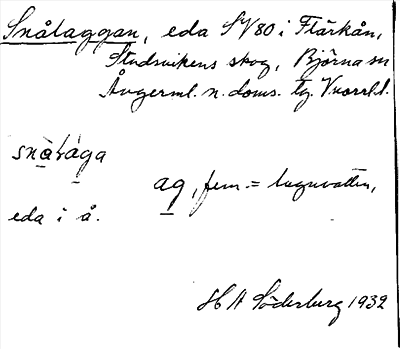 Snålaggan, eda SV 80 i Flärkån,
Studsvikens skog, Björna sn
Ångerml. n. doms. tg. V.norrl.l.
snålaga
ag, fem. = lugnvatten,
eda i å.
H A Söderburg 1932